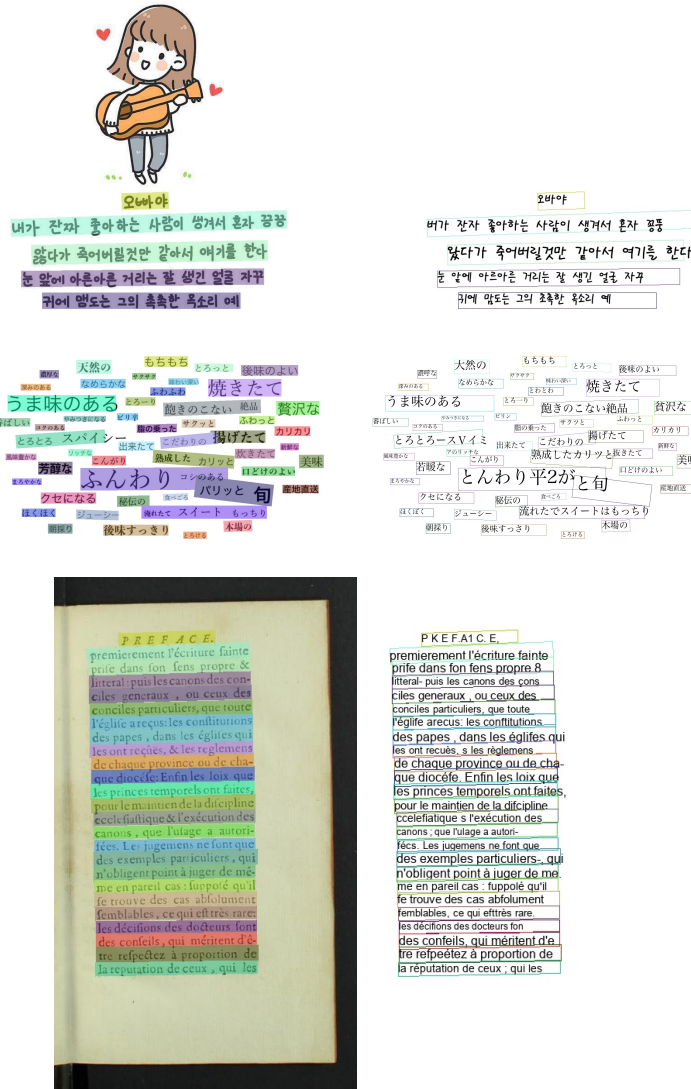 오빠야
내가 진짜 좋아하는 사람이 생겨서 혼자 끙끙
앓다가 죽어버릴것만 같아서 얘기를 한다
눈 앞에 아른아른 거리는 잘 생긴 얼굴 자꾸
귀에 맴도는 그의 촉촉한 목소리 예
오바야
버가 잔자 졸아하는 사람이 생겨서 혼자 끙똥
왔다가 죽어버릴것만 같아서 여기를 한다
눈 앝에 아르아른 거리는 잘 생긴 얼굴 자꾸
귀에 맘도는 그의 조촉한 옥소리 예
もちもち
天然の
とろっと
後味のよい
濃厚な
サクサク
深みのある
なめらかな
味わい深い
ふわふわ
焼きたて
うま味のある
とろーり
飽きのこない
絶品
贅沢な
香ばしい
やみつきになる
ピリ辛
ふわっと
コクのある
脂の乗った
サクッと
カリカリ
とろとろ
スパイシー
出来たて
こだわりの
揚げたて
新鮮な
風味豊かな
リッチな
こんがり
熟成した
カリッと
炊きたて
美味
芳醇な
口どけのよい
まろやかな
ふんわり
コシのある
パリッと
旬
産地直送
クセになる
秘伝の
食べごろ
ほくほく
ジューシー
淹れたて
スイート
もっちり
朝採り
後味すっきり
とろける
木場の
もちもち
天然の
とろっと
後味のよい
濃厚な
サクサク
深みのある
なめらかな
味わい深い
とわとわ
焼きたて
うま味のある
とろーり
飽きのこない絶品
贅沢な
香ばしい
やみつきになる
ピリン
ふわっと
コクのある
脂の乗った
サクッと
カリカリ
とろとろースVイミ
出来たて
こだわりの
揚げたて
新鮮な
風味豊かな
アのリッチな
こんがり
熟成したカリッと
抜きたて
若暖な
口どけのよい
まろやかな
とんわり平2が
と旬
産地直送
クセになる
秘伝の
食べごろ
ほくほく
ジューシー
流れたでスイートはもっちり
朝採り
後味すっきり
とろける
木場の
PREFACE.
premierement l'écriture sainte
prise dans son sens propre &
litteral: puis les canons des con-
ciles generaux , ou ceux des
conciles particuliers, que toute
l'église a reçus: les constitutions
des papes , dans les églises qui
les ont reçûës, & les reglemens
de chaque province ou de cha-
que diocése: Enfin les loix que
les princes temporels ont faites,
pour le maintien de la discipline
ecclesiastique & l'exécution des
canons , que l'usage a autori-
fécs. Les jugemens ne font que
des exemples particuliers , qui
n'obligent point à juger de mê-
me en pareil cas : supposé qu'il
se trouve des cas absolument
semblables, ce qui est très rare:
les décisions des docteurs sont
des conseils, qui méritent d'ê-
tre respectez à proportion de
la reputation de ceux , qui les
P K E F.A1 C. E,
premierement l'écriture fainte
prife dans fon fens propre 8
litteral- puis les canons des çons
ciles generaux , ou ceux des
conciles particuliers, que toute
l'églife arecus: les conftitutions
des papes , dans les églifes qui
les ont recuès, s les règlemens
de chaque province ou de cha-
que diocéfe. Enfin les loix que
les princes temporels ont faites,
pour le maintien de la difcipline
ccelefiatique s l'exécution des
canons ; que l'ulage a autori-
fécs. Les jugemens ne font que
des exemples particuliers-, qui
n'obligent point à juger de me.
me en pareil cas : fuppolé qu'il
fe trouve des cas abfolument
femblables, ce qui efttrès rare.
les décifions des docteurs fon
des confeils, qui méritent d'e
tre refpeétez à proportion de
la réputation de ceux ; qui les